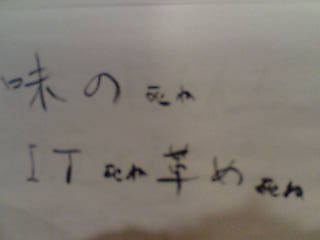 味の 死ね
IT 死ね 革め 死ね